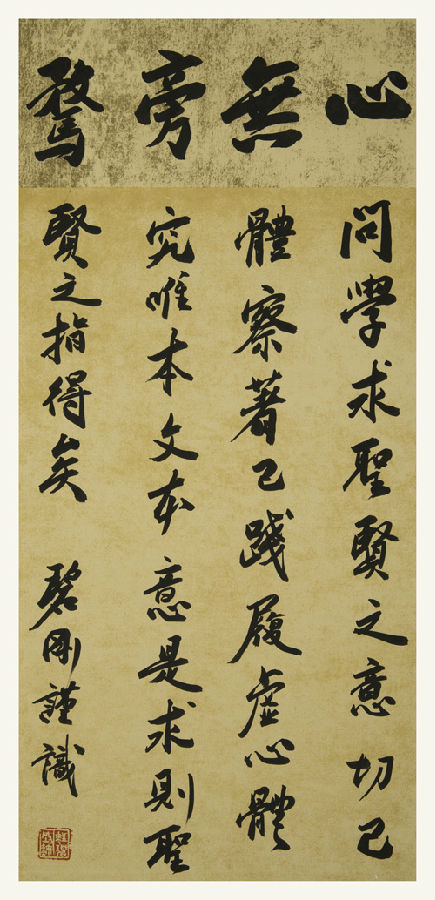 心無旁騖
問學求聖賢之意切己
體察著己踐履虛心體
究唯本文本意是求則聖
賢之指得矣
碧剛謹識